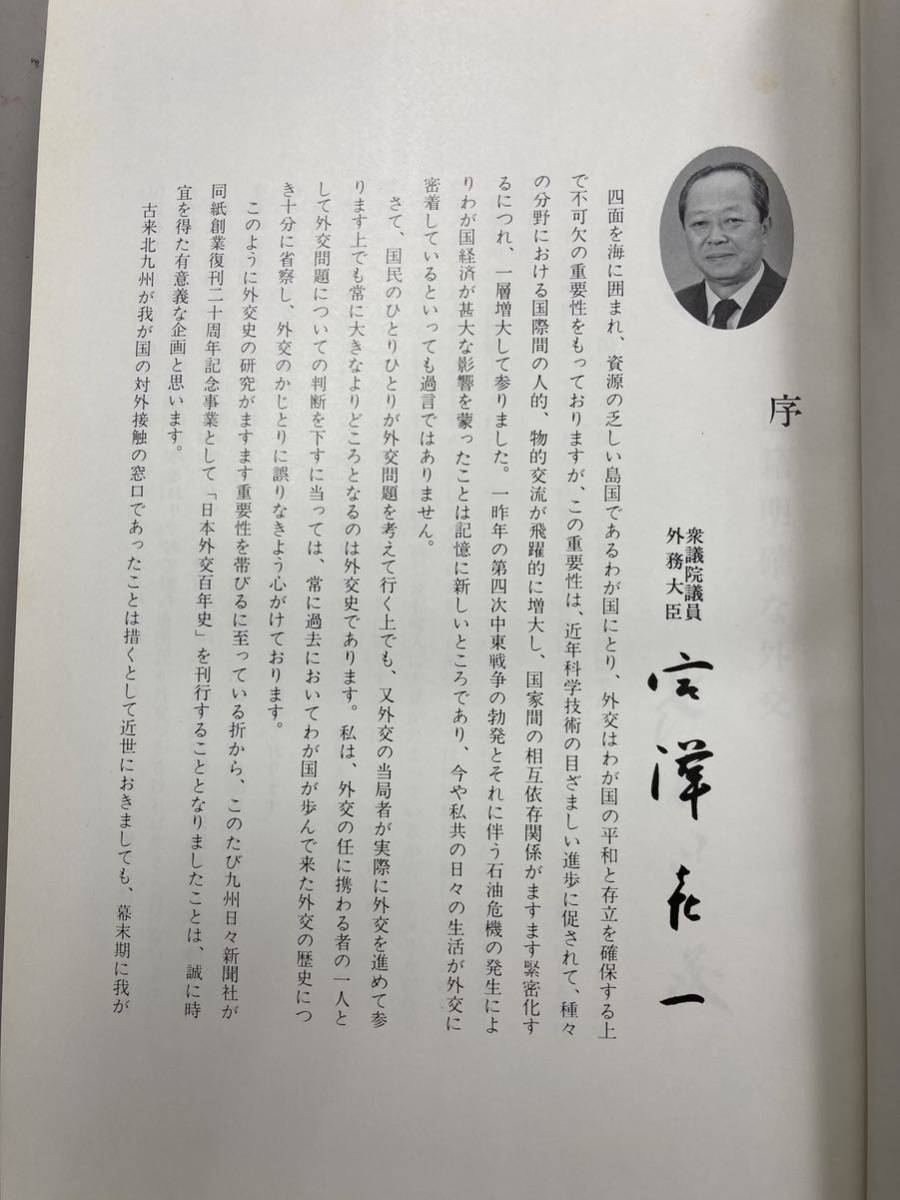 序
衆議院議員
外務大臣
宮澤喜一
四面を海に囲まれ、資源の乏しい島国であるわが国にとり、外交はわが国の平和と存立を確保する上
で不可欠の重要性をもっておりますが、この重要性は、近年科学技術の目ざましい進歩に促されて、種々
の分野における国際間の人的、物的交流が飛躍的に増大し、国家間の相互依存関係がますます緊密化す
るにつれ、一層増大して参りました。一昨年の第四次中東戦争の勃発とそれに伴う石油危機の発生によ
りわが国経済が甚大な影響を蒙ったことは記憶に新しいところであり、今や私共の日々の生活が外交に
密着しているといっても過言ではありません。
さて、国民のひとりひとりが外交問題を考えて行く上でも、又外交の当局者が実際に外交を進めて参
ります上でも常に大きなよりどころとなるのは外交史であります。私は、外交の任に携わる者の一人と
して外交問題についての判断を下すに当っては、常に過去においてわが国が歩んで来た外交の歴史につ
き十分に省察し、外交のかじとりに誤りなきよう心がけております。
このように外交史の研究がますます重要性を帯びるに至っている折から、このたび九州日々新聞社が
同紙創業復刊二十周年記念事業として「日本外交百年史」を刊行することとなりましたことは、誠に時
宜を得た有意義な企画と思います。
古来北九州が我が国の対外接触の窓口であったことは措くとして近世におきましても、幕末期に我が